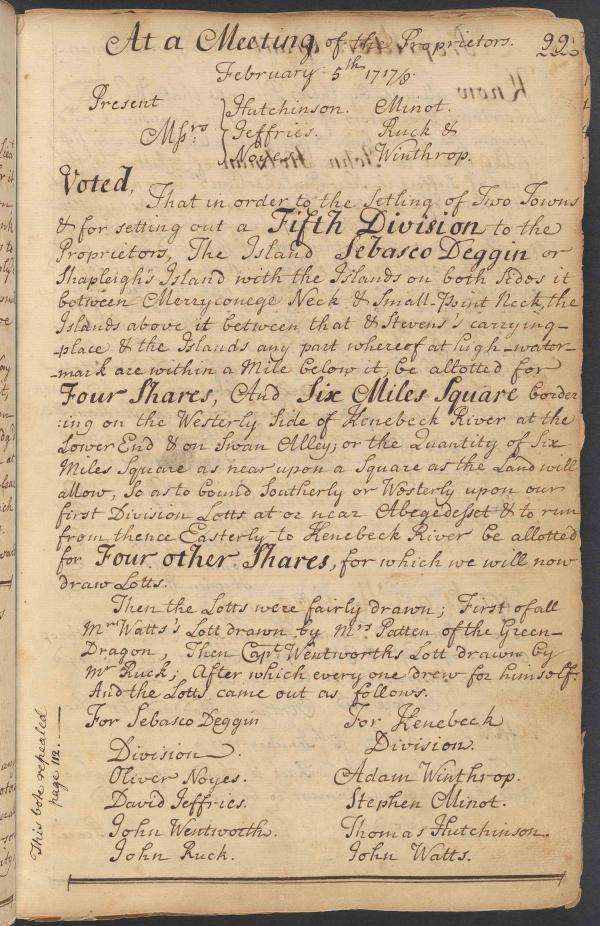 At a Meeting of the Proprietors. 99
February 5th 1717/8.
Present
Hutchinson. Minot.
Mssrs: Jeffries. Ruck &
Noyes. Winthrop.
Voted,
That in order to the Setling of Two Towns
& for setting out a Fifth Division to the
Proprietors, The Island Sebasco Deggin or
Shapleigh's Island with the Islands on both Sides it
between Merryconege Neck & Small-Point Neck, the
Islands above it between that & Stevens's carrying-
-place & the Islands any part whereof at high-water-
-mark are within a Mile below it, be allotted for
Four Shares, And Six Miles Square border
:ing on the Westerly Side of Kenebeck River at the
Lower End & on Swan Alley; or the Quantity of Six
Miles Square as near upon a Square as the Land will
allow, So as to bound Southerly or Westerly upon our
first Division Lotts at or near Abegedesset & to run
from thence Easterly to Kenebeck River be allotted
for Four other Shares, for which we will now
draw Lotts.
Then the Lotts were fairly drawn; First of all
Mr Watts's Lott drawn by Mrs Patten of the Green-
Dragon, Then Capt. Wentworths Lott drawn by
Mr Ruck; After which every one drew for himself:
And the Lotts came out as follows.
For Sebasco Deggin For Kenebeck
Division. Division.
Oliver Noyes. Adam Winthrop.
David Jeffries. Stephen Minot.
John Wentworth. Thomas Hutchinson.
John Ruck. John Watts.
This vote repealed
page 112.